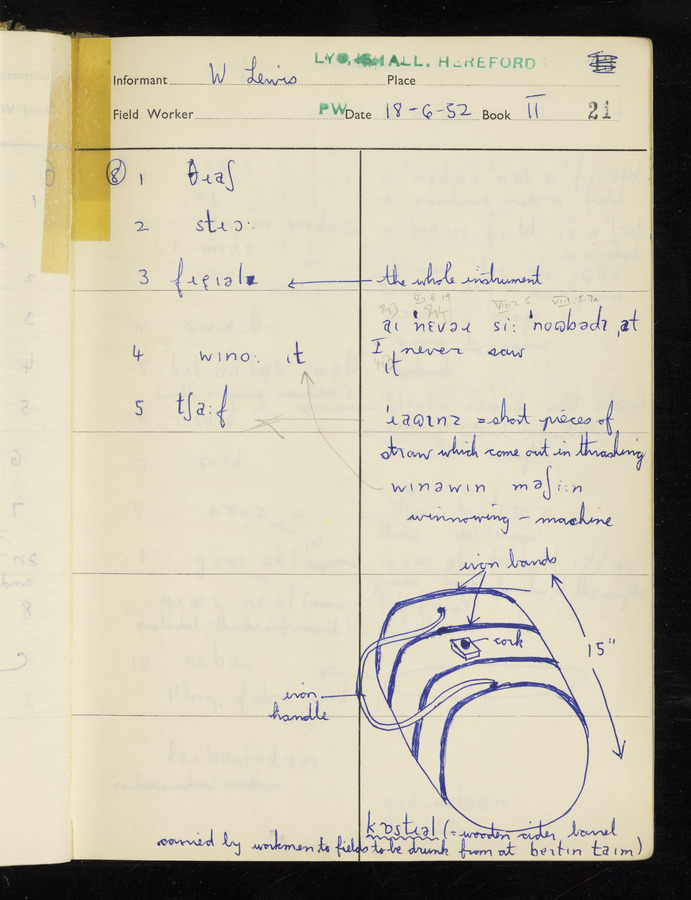 LYONSHALL. HEREFORD
Informant W Lewis Place
Field Worker PW Date 18-6-52 Book II 21
⑧ 1 θɹaʃ
2 stɹɔ:
3 the whole instrument
VIII.2.5 VIII.5.7a
aɪ ˈnɛvəɹ si: ət
I never saw
it
4 wɪnə: ɪt
5 tʃa:f
= short pieces of
straw which come out in thrashing
wɪnəwɪn məʃi:n
winnowing - machine
iron bands
cork
15"
iron
handle
kɒstɹəl (= wooden cider barrel
carried by workmen to fields to be drunk from at bɛɹtɪn taɪm)